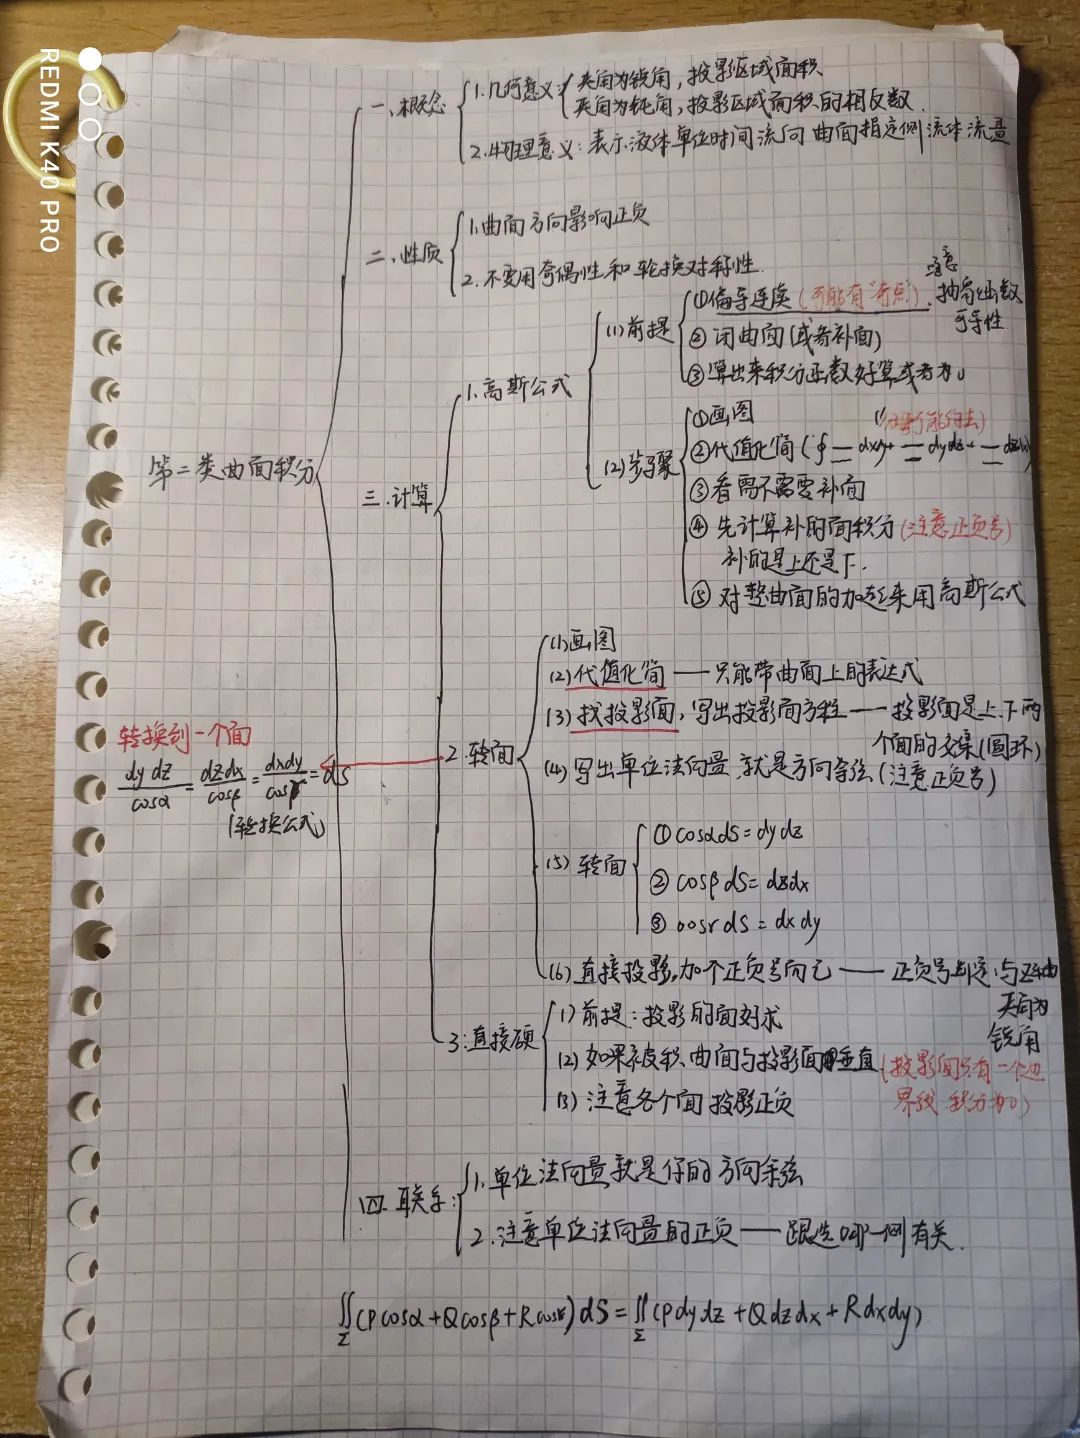 REDMI K40 PRO
第二类曲面积分
一.概念
1.几何意义:
夹角为锐角,投影区域面积
夹角为钝角,投影区域面积的相反数.
2.物理意义:表示液体单位时间流向曲面指定侧流体流量
二.性质
1.曲面方向影响正负
2.不要用奇偶性和轮换对称性.
三.计算
1.高斯公式
(1)前提
①偏导连续(可能有"奇点").
注意
抽象函数
可导性
②闭曲面(或者补面)
③算出来积分函数好算或者为0
(2)步骤
①画图
②代值化简(∮ 二 dxdy+ 二 dydz+ 二 dzdx)
③看需不需要补面
④先计算补的面积分(注意正负号)
补的是上还是下.
⑤对整曲面的加起来用高斯公式
2.转面
(1)画图
(2)代值化简——只能带曲面上的表达式
(3)找投影面,写出投影面方程——投影面是上.下两
个面的交集(圆环)
(4)写出单位法向量.就是方向余弦(注意正负号)
(5)转面
①cosαdS=dydz
②cosβdS=dzdx
③cosrdS=dxdy
(6)直接投影.加个正负号而已——正负号判定:与Z轴
夹角为
锐角
转换到一个面
dydz/cosα=dzdx/cosβ=dxdy/cosγ=dS
(轮换公式)
3.直接硬
(1)前提:投影的面好求
(2)如果被积曲面与投影面垂直(投影面只有一个边
界线.积分为0)
(3)注意各个面投影正负
四.联系:
1.单位法向量就是仔的方向余弦
2.注意单位法向量的正负——跟选哪一侧有关.
∬Σ(Pcosα+Qcosβ+Rcosγ)dS=∬Σ(Pdydz+Qdzdx+Rdxdy)